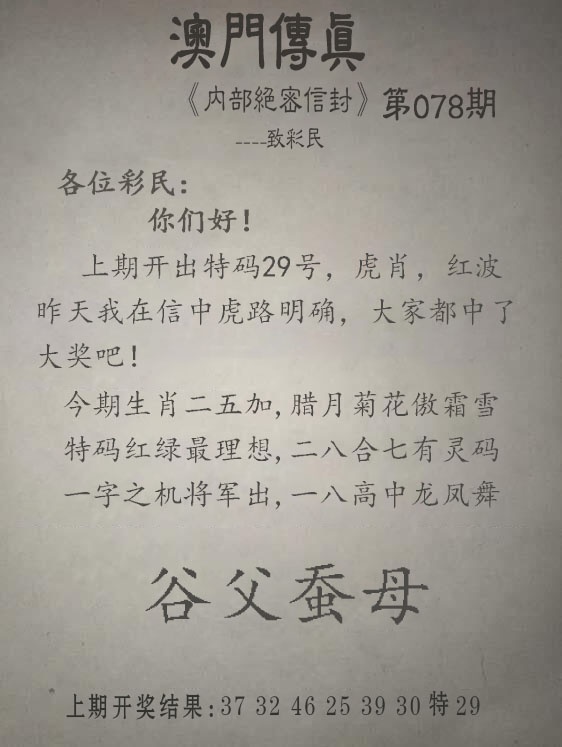 澳門傳眞
《内部絕密信封》第078期
----致彩民
各位彩民:
你们好!
上期开出特码29号，虎肖，红波
昨天我在信中虎路明确，大家都中了
大奖吧!
今期生肖二五加,腊月菊花傲霜雪
特码红绿最理想,二八合七有灵码
一字之机将军出,一八高中龙凤舞
谷父蚕母
上期开奖结果:37 32 46 25 39 30 特 29